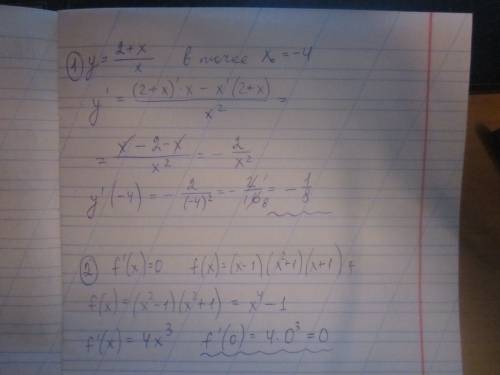 ① y = (2+x)/x в точке x₀ = -4
y' = ((2+x)'x - x'(2+x))/x² =
= (x - 2 - x)/x² = - 2/x²
y'(-4) = - 2/(-4)² = - 2/16 = - 1/8
② f'(x)=0 f(x)=(x-1)(x²+1)(x+1)
f(x) = (x²-1)(x²+1) = x⁴ - 1
f'(x) = 4x³ f'(0) = 4·0³ = 0